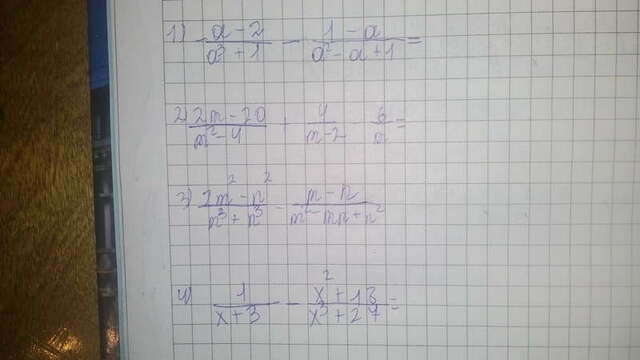 1) (a-2)/(a³+1) - (1-a)/(a²-a+1) =
2) (2m-20)/(m²-4) + 4/(m-2) 6/m =
3) (2m²-n²)/(m³+n³) - (m-n)/(m²-mn+n²)
4) 1/(x+3) - (x²+18)/(x³+27) =